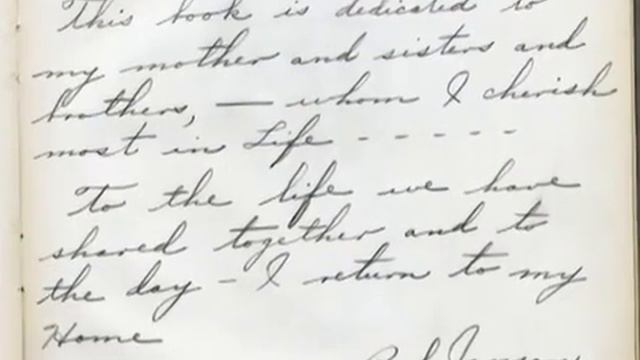 This book is dedicated to
my mother and sisters and
brothers, — whom I cherish
most in Life - - - - -
To the life we have
shared together and to
the day - I return to my
Home